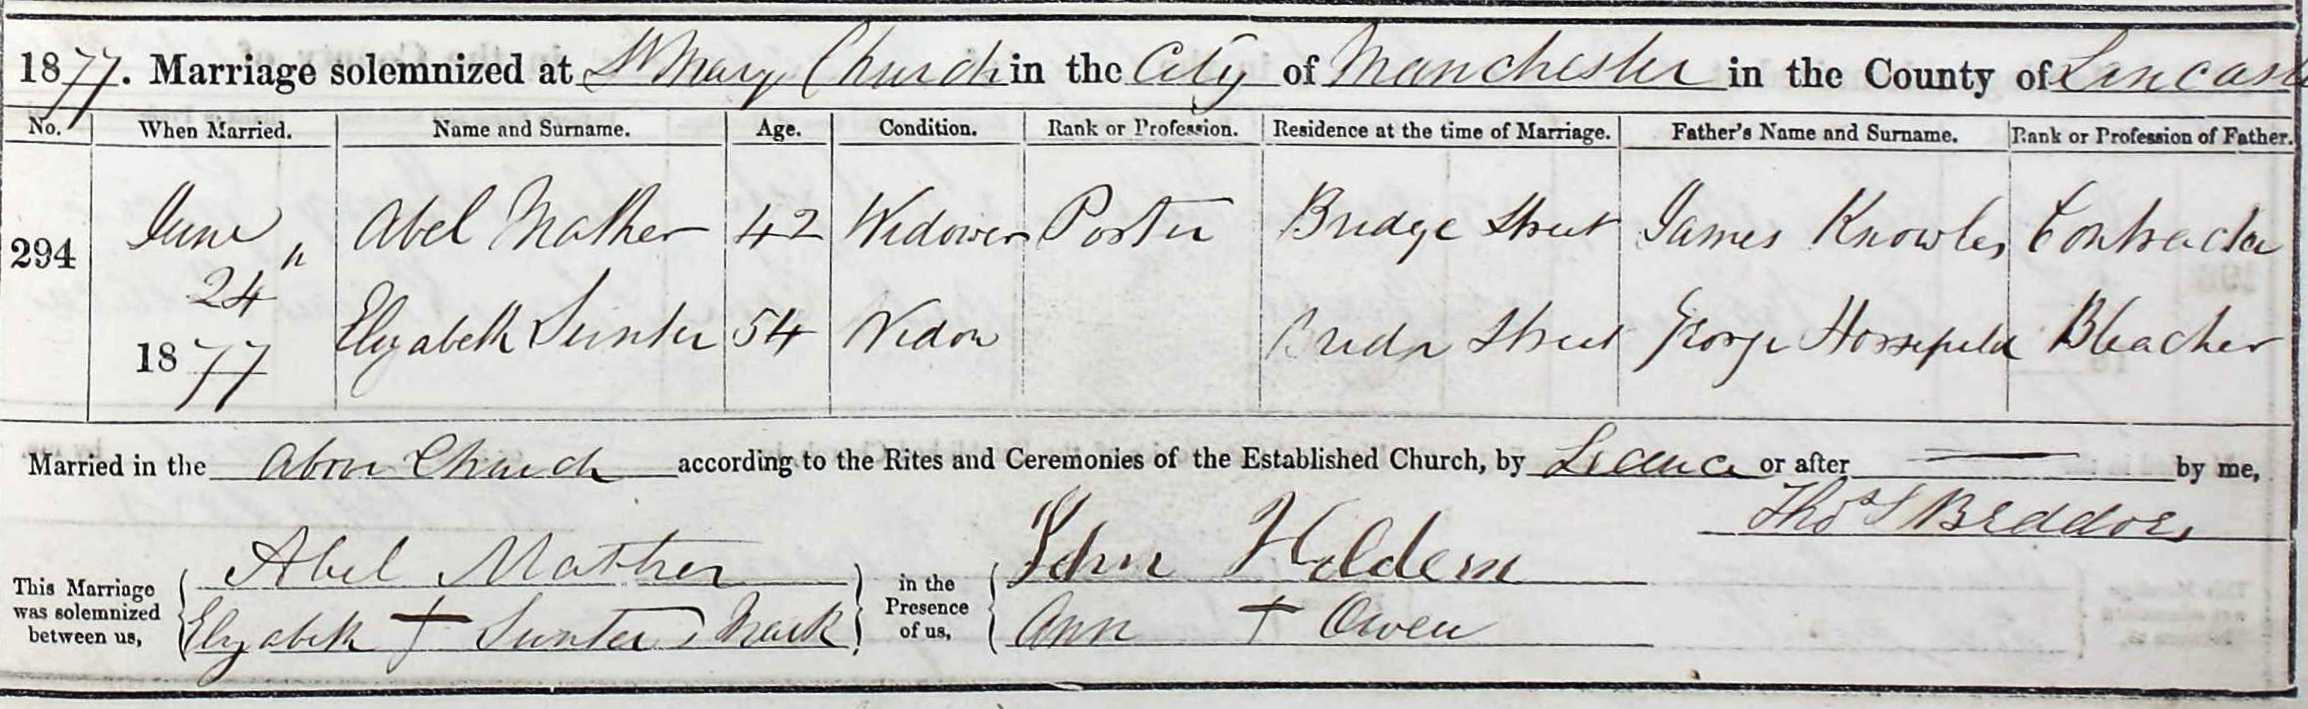 1877. Marriage solemnized at St Mary Church in the City of Manchester in the County of Lancaster
No. When Married. Name and Surname. Age. Condition. Rank or Profession. Residence at the time of Marriage. Father's Name and Surname. Rank or Profession of Father.
294 June 24th 1877 Abel Mather 42 Widower Porter Bridge Street James Knowles Contractor
Elizabeth Sunter 54 Widow Bridge Street George Horsefield Bleacher
Married in the above Church according to the Rites and Ceremonies of the Established Church, by Licence or after —— by me,
Thos S Beddoes
This Marriage was solemnized between us, Abel Mather in the Presence of us, John Holdem
Elizabeth + Sunter's Mark Ann + Owen